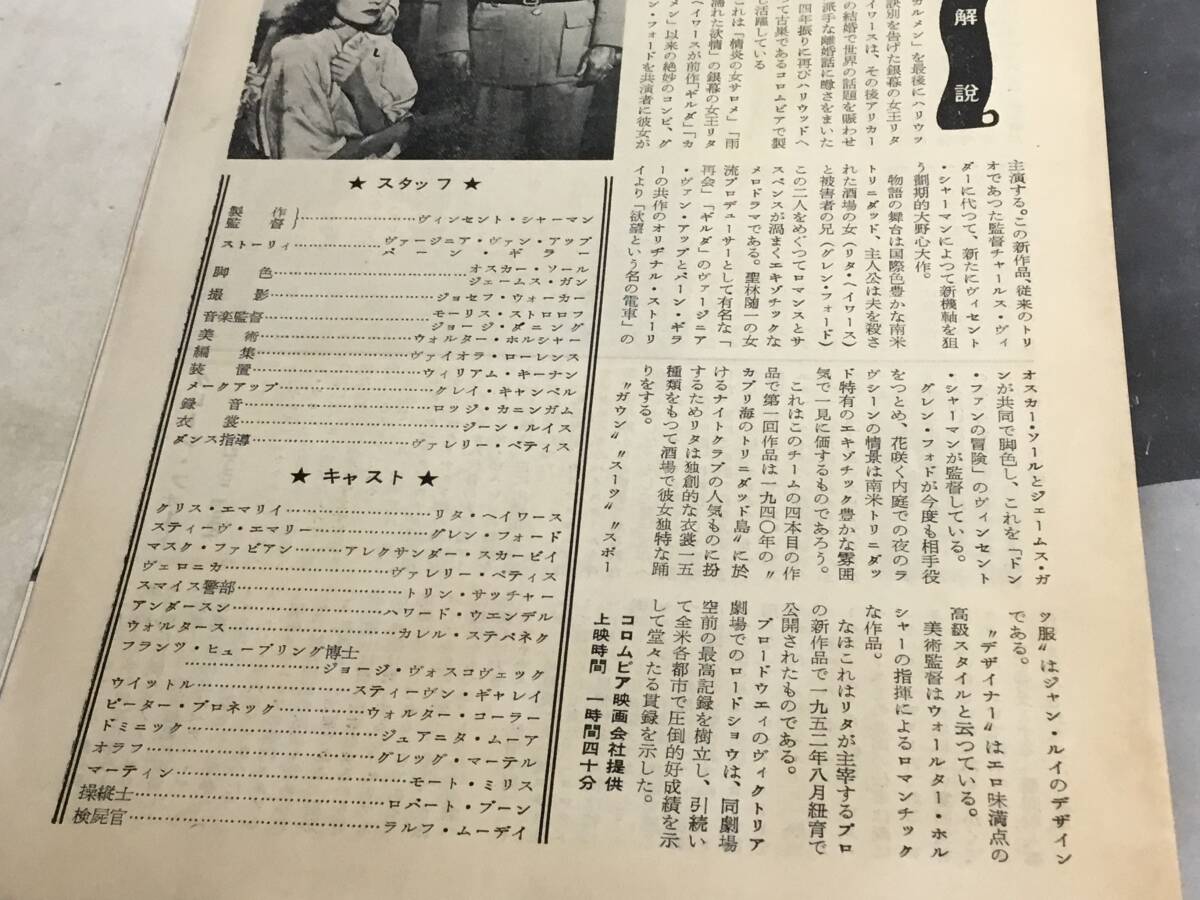 解説
カルメン」を最後にハリウッ
訣別を告げた銀幕の女王リタ
イワースは、その後アリカー
の結婚で世界の話題を賑わせ
派手な離婚話に憂さをまいた
四年振りに再びハリウッドへ
って古巣であるコロムビアで製
し活躍している
これは「情炎の女サロメ」「雨
濡れた欲情」の銀幕の女王リタ
ヘイワースが前作「ギルダ」「カ
メン」以来の絶妙のコンビ、グ
ン・フォードを共演者に彼女が
主演する。この新作品、従来のトリ
オであつた監督チャールス・ヴィ
ダーに代つて、新たにヴィセント
・シャーマンによつて新機軸を狙
う劃期的大野心大作。
物語の舞台は国際色豊かな南米
トリニダッド、主人公は夫を殺さ
れた酒場の女（リタ・ヘイワース）
と被害者の兄（グレン・フォード）
この二人をめぐつてロマンスとサ
スペンスが渦まくエキゾチックな
メロドラマである。聖林随一の女
流プロデューサーとして有名な「
再会」「ギルダ」のヴァージニア
・ヴァン・アップとバーン・ギラ
ーの共作のオリヂナル・ストーリ
イより「欲望という名の電車」の
オスカー・ソールとジェームス・ガ
ンが共同で脚色し、これを「ドン
・ファンの冒険」のヴィンセント
・シャーマンが監督している。
グレン・フォドが今度も相手役
をつとめ、花咲く内庭での夜のラ
ヴシーンの情景は南米トリニダッ
ド特有のエキゾチック豊かな雰囲
気で一見に価するものであろう。
これはこのチームの四本目の作
品で第一回作品は一九四〇年の〃
カブリ海のトリニダッド島〃に於
けるナイトクラブの人気ものに扮
するためリタは独創的な衣裳一五
種類をもつて酒場で彼女独特な踊
りをする。
〃ガウン〃〃スーツ〃〃スポー
ツ服〃はジャン・ルイのデザイン
である。
〃デザイナー〃はエロ味満点の
高級スタイルと云つている。
美術監督はウォルター・ホル
シャーの指揮によるロマンチック
な作品。
なほこれはリタが主宰するプロ
の新作品で一九五二年八月紐育で
公開されたものである。
ブロードウエィのヴィクトリア
劇場でのロードショウは、同劇場
空前の最高記録を樹立し、引続い
て全米各都市で圧倒的好成績を示
して堂々たる貫録を示した。
コロムビア映画会社提供
上映時間 一時間四十分
★ スタッフ ★
製作 監督}……ヴィンセント・シャーマン
ストーリィ……ヴァージニア・ヴァン・アップ
バーン・ギラー
脚色……オスカー・ソール
ジェームス・ガン
撮影……ジョセフ・ウォーカー
音楽監督……モーリス・ストロロフ
ジョージ・ダニング
美術……ウォルター・ホルシャー
編集……ヴァイオラ・ローレンス
装置……ウィリアム・キーナン
メークアップ……クレイ・キャンベル
録音……ロッジ・カニンガム
衣裳……ジーン・ルイス
ダンス指導……ヴァレリー・ベティス
★ キャスト ★
クリス・エマリイ……リタ・ヘイワース
スティーヴ・エマリー……グレン・フォード
マスク・ファビアン……アレクサンダー・スカービイ
ヴェロニカ……ヴァレリー・ベティス
スマイス警部……トリン・サッチャー
アンダースン……ハワード・ウエンデル
ウォルタース……カレル・ステパネク
フランツ・ヒューブリング博士
……ジョージ・ヴォスコヴェック
ウイットル……スティーヴン・ギャレイ
ピーター・ブロネック……ウォルター・コーラー
ドミニック……ジュアニタ・ムーア
オラフ……グレッグ・マーテル
マーティン……モート・ミリス
操縦士……ロバート・ブーン
検屍官……ラルフ・ムーデイ